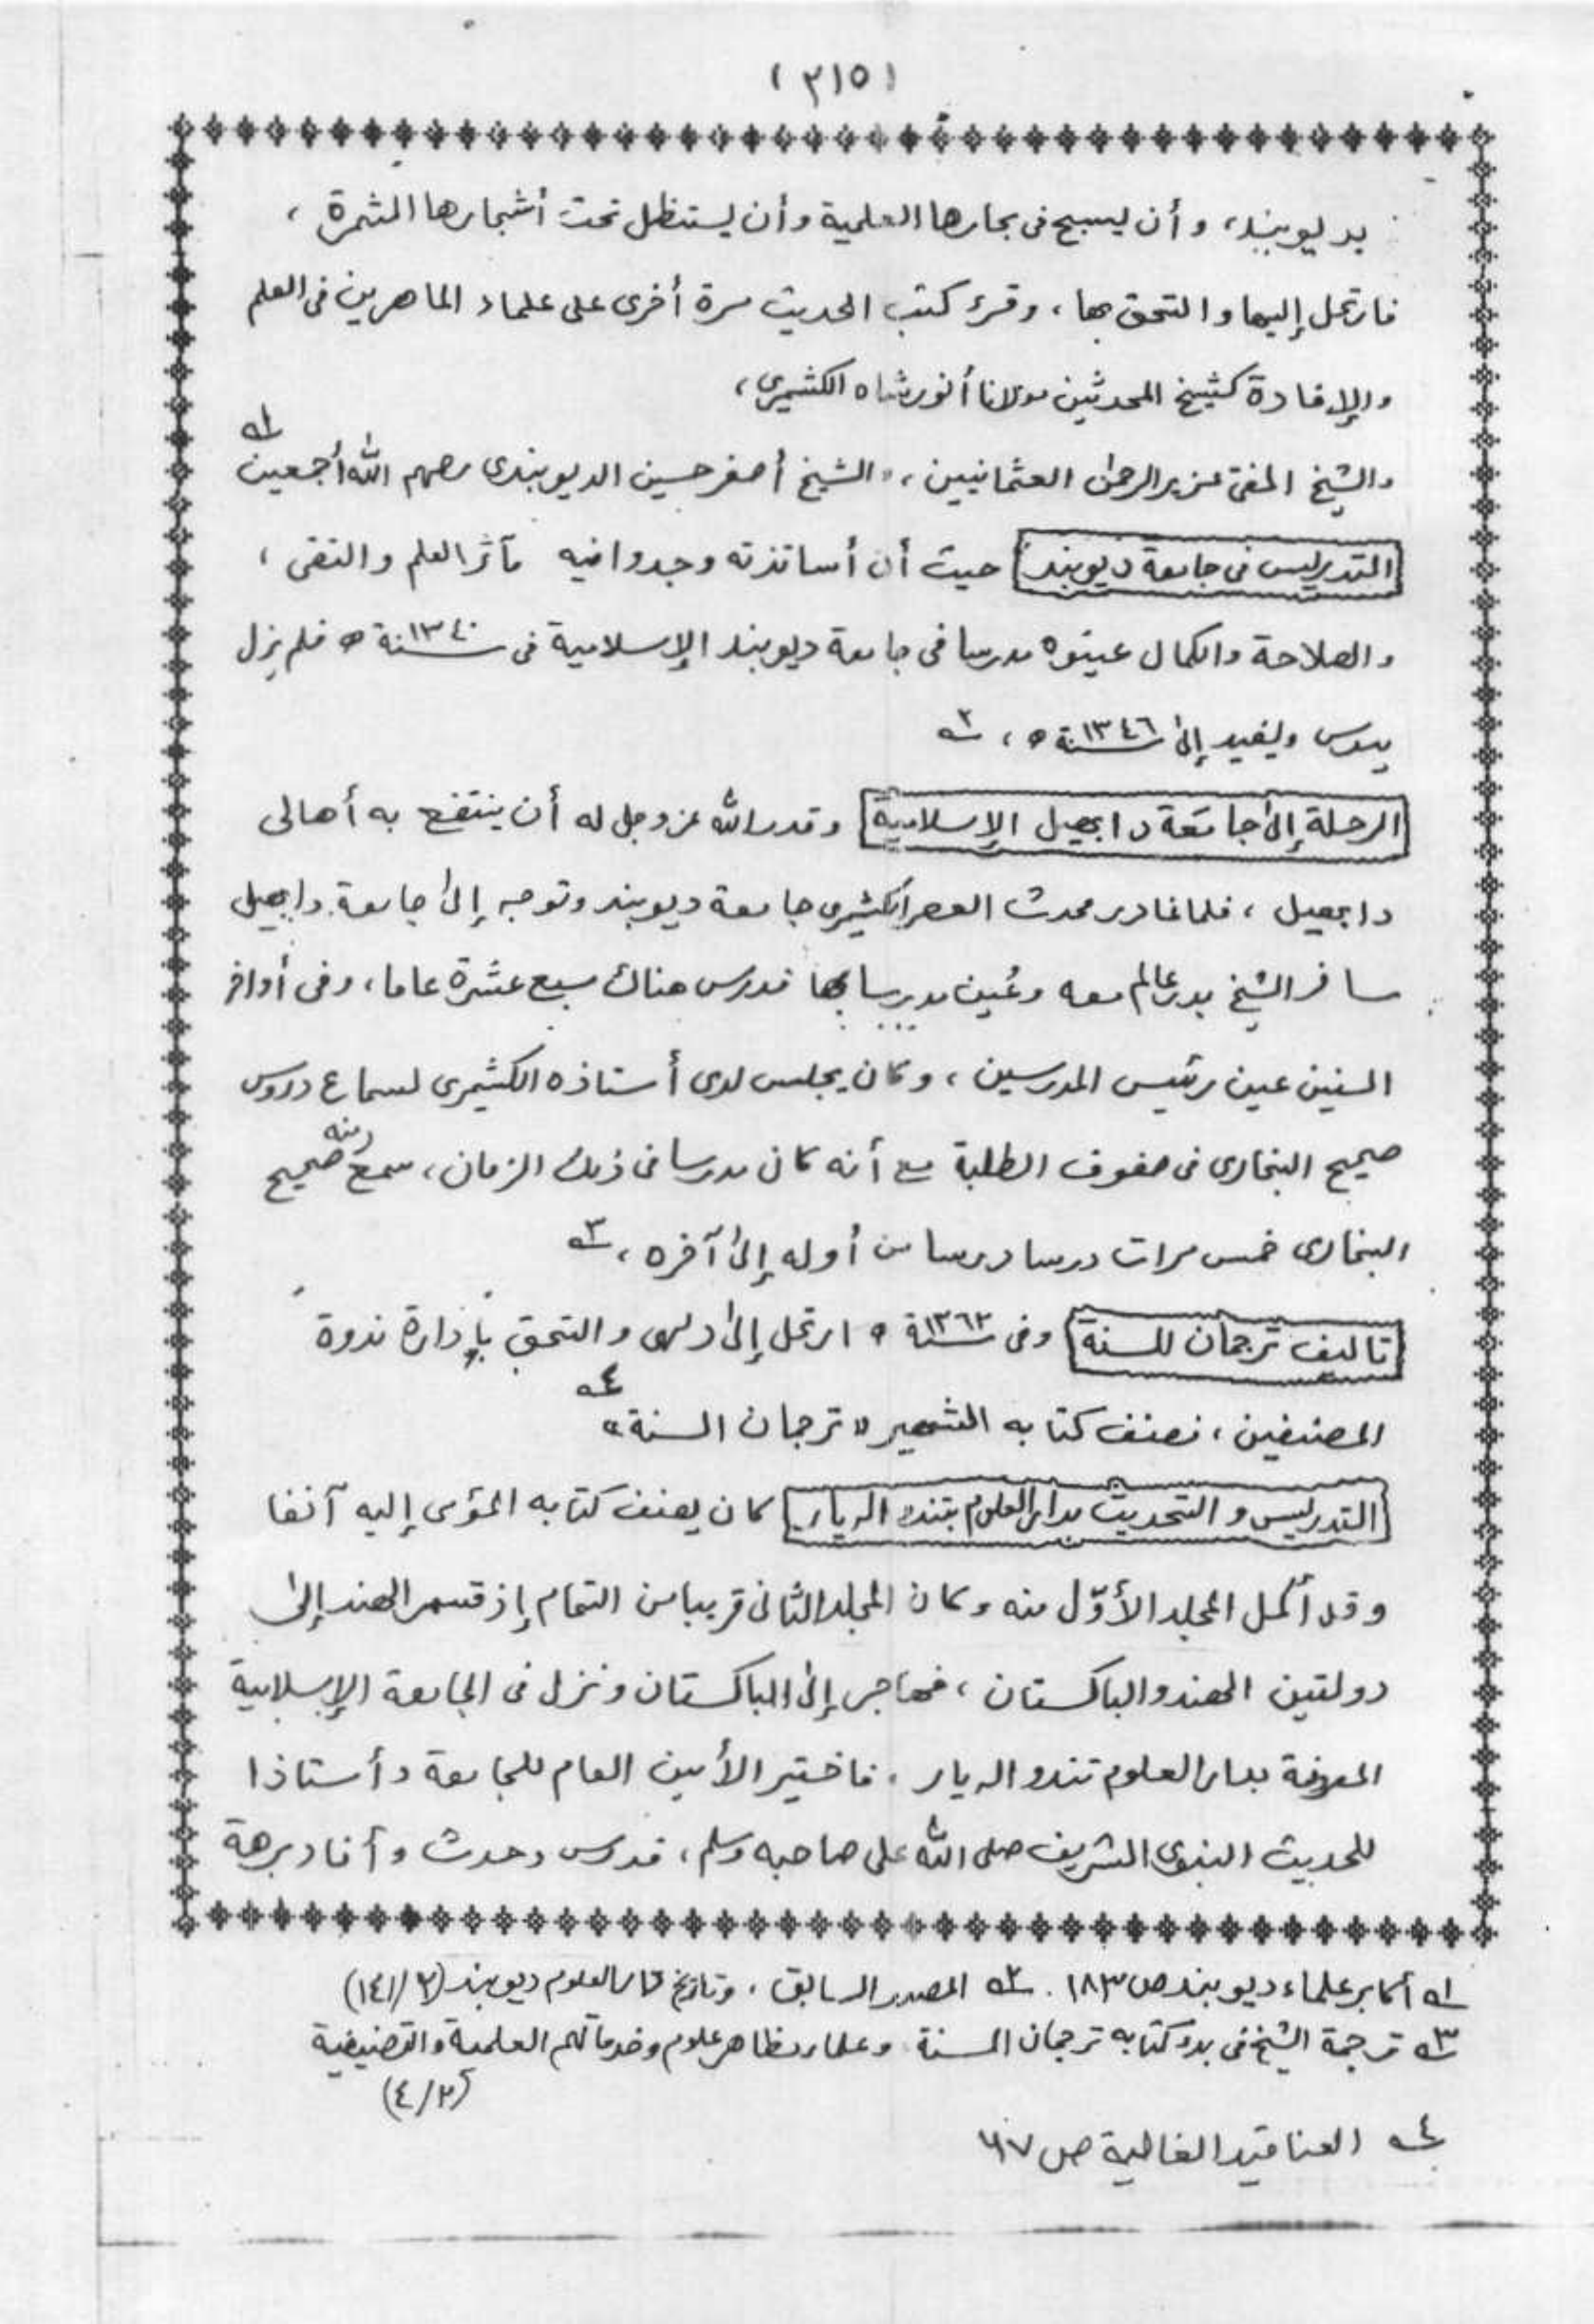 (٣١٥)
بديوبند، وأن يسبح فى بحارها العلمية وأن يستظل تحت أشجارها المثمرة،
فارتحل إليها والتحق بها، وقرء كتب الحديث مرة أخرى على علماء الماهرين فى العلم
والإفادة كشيخ المحدثين مولانا أنور شاه الكشميرى،
والشيخ المفتى عزيز الرحمن العثمانيين، والشيخ أصغر حسين الديوبندى رحمهم الله أجمعين ١ـه
التدريس فى جامعة ديوبند حيث أن أساتذته وجدوا فيه مآثر العلم والتقى،
والصلاحة والكمال عينوه مدرسا فى جامعة ديوبند الإسلامية فى سنة ١٣٤٠ ه فلم يزل
يدرس ويفيد إلى سنة ١٣٤٦ ه، ٢ـه
الرحلة إلى جامعة دابهيل الإسلامية وقدر الله عز وجل له أن ينتفع به أهالى
دابهيل، فلما غادر محدث العصر الكشميرى جامعة ديوبند وتوجه إلى جامعة دابهيل
سافر الشيخ بدر عالم معه وعُين مدرسا بها فدرس هناك سبع عشرة عاما، وفى أواخر
السنين عين رئيس المدرسين، وكان يجلس لدى أستاذه الكشميرى لسماع دروس
صحيح البخارى فى صفوف الطلبة مع أنه كان مدرسا فى ذلك الزمان، سمع منه صحيح
البخارى خمس مرات درسا درسا من أوله إلى آخره، ٣ـه
تاليف ترجمان للسنة وفى سنة ١٣٦٢ ه ارتحل إلى دلهى والتحق بإدارة ندوة
المصنفين، فصنف كتابه الشهير "ترجمان السنة" ٤ـه
التدريس والتحديث بدار العلوم بتندو اله يار كان يصنف كتابه المؤمى إليه آنفا
وقد أكمل المجلد الأوّل منه وكان المجلد الثانى قريبا من التمام إذ قسم الهند إلى
دولتين الهند والباكستان، فهاجر إلى الباكستان ونزل فى الجامعة الإسلامية
المعروفة بدار العلوم تندو اله يار، فاختير الأمين العام للجامعة وأستاذا
للحديث النبوى الشريف صلى الله على صاحبه وسلم، فدرس وحدث وأفاد برهة
١ـه أكابر علماء ديوبند ص ١٨٣. ٢ـه المصدر السابق، وتاريخ دار العلوم ديوبند (٢/١٤١)
٣ـه ترجمة الشيخ فى بدو كتابه ترجمان السنة وعلماء مظاهر علوم وخدماتهم العلمية والتصنيفية
(٢/٤)
٤ـه العناقيد الغالية ص ٦٧